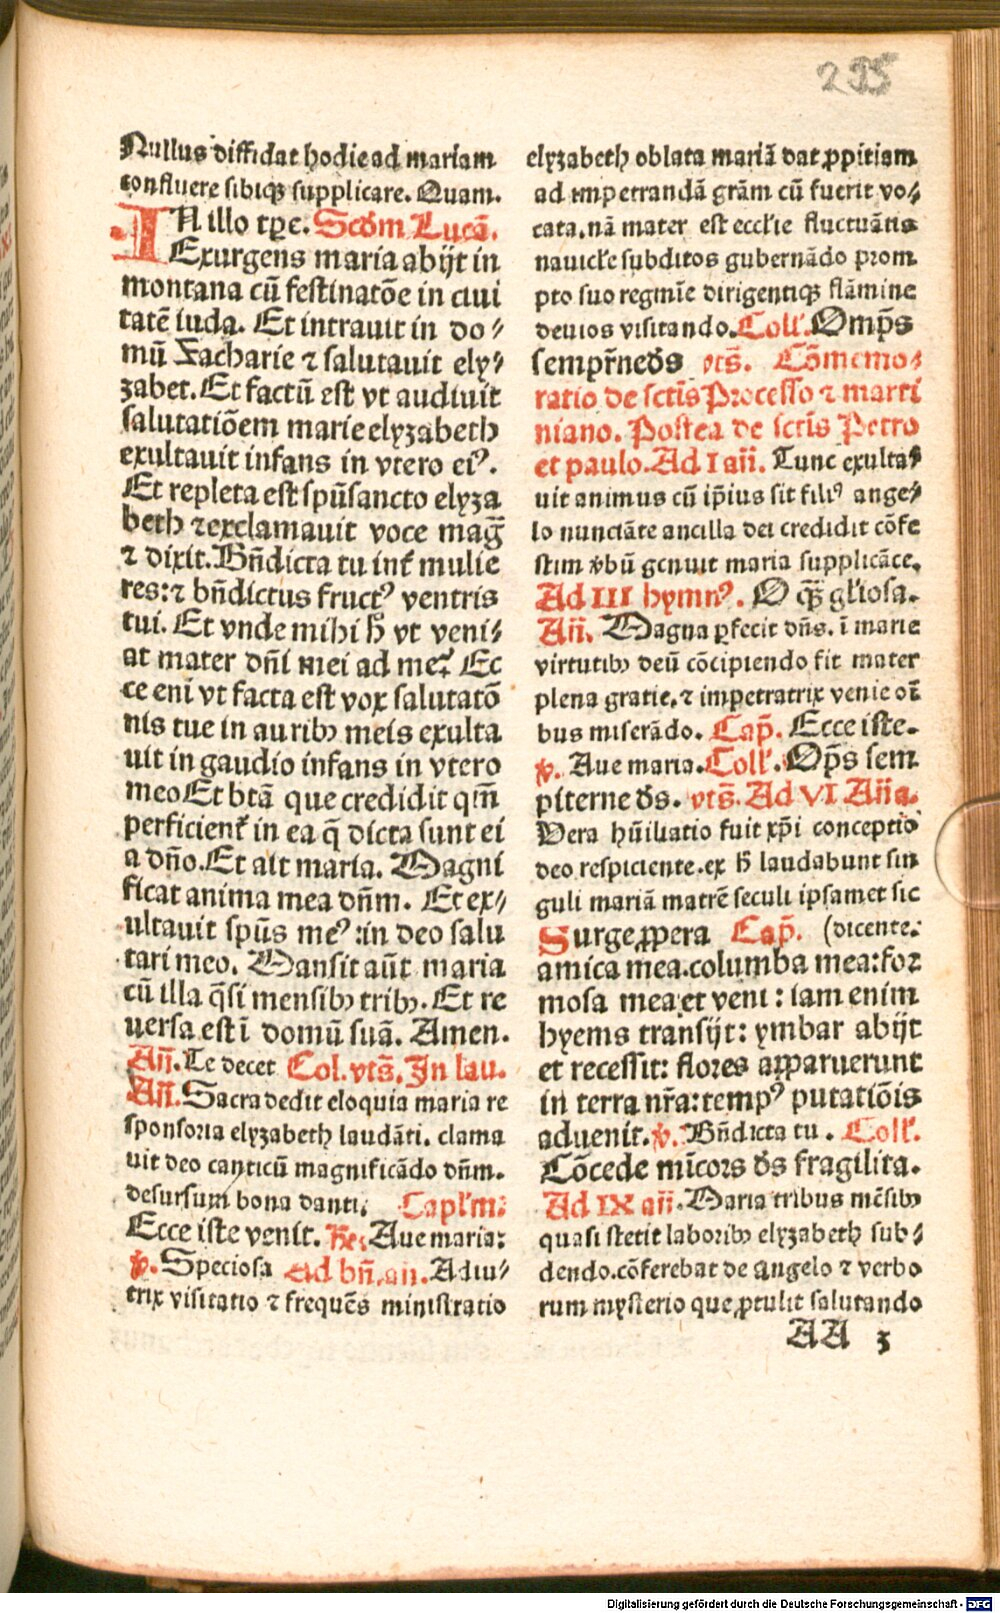 235
Nullus diffidat hodie ad mariam
confluere sibiqꝫ supplicare. Quam.
IN illo tꝑe. Scďm Lucā.
Exurgens maria abijt in
montana cū festinatōe in ciui
tatē iuda. Et intrauit in do⸗
mū Zacharie ⁊ salutauit ely⸗
zabet. Et factū est vt audiuit
salutatiōem marie elyzabeth
exultauit infans in vtero eiꝰ.
Et repleta est spūsancto elyza
beth ⁊exclamauit voce mag̃
⁊ dixit. Bn̄dicta tu int̄ mulie
res:⁊ bn̄dictus fructꝰ ventris
tui. Et vnde mihi h̄ vt veni⸗
at mater dn̄i mei ad me? Ec
ce eni vt facta est vox salutatō
nis tue in auribꝫ meis exulta
uit in gaudio infans in vtero
meo Et btā que credidit qm̄
perficient̄ in ea q̄ dicta sunt ei
a dn̄o. Et ait maria. Magni
ficat anima mea dn̄m. Et ex⸗
ultauit spūs meꝰ :in deo salu
tari meo. Mansit aūt maria
cū illa q̄si mensibꝫ tribꝫ. Et re
uersa est ī domū suā. Amen.
An̄. Te decet Col. vts̄. In lau.
An̄. Sacra dedit eloquia maria re
sponsoria elyzabeth laudāti. clama
uit deo canticū magnificādo dn̄m.
desursum bona danti. Capl'm:
Ecce iste venit. R̄e: Aue maria:
v̄. Speciosa ad bn̄. an. Adiu⸗
trix visitatio ⁊ frequēs ministratio
elyzabeth oblata mariā dat ꝓpitiam
ad impetrandā grām cū fuerit vo⸗
cata. nā mater est eccl'ie fluctuātis
nauicl'e subditos gubernādo prom
pto suo regmīe dirigentiqꝫ flāmine
deuios visitando. Coll'. Omp̄s
sempr̄neďs vts̄. Cōmemo⸗
ratio de sctīs Processo ⁊ marti
niano. Postea de sctīs Petro
et paulo. Ad I an̄. Tunc exulta⸗
uit animus cū ip̄ius sit filiꝰ ange⸗
lo nunciāte ancilla dei credidit cōfe
stim v̄bū genuit maria supplicāce.
Ad III hymnꝰ. O qꝫ̄ gl'iosa.
An̄. Magna ꝑfecit dn̄s. ī marie
virtutibꝫ deū cōcipiendo fit mater
plena gratie. ⁊ impetratrix venie oī
bus miserādo. Cap̄. Ecce iste.
v̄. Aue maria. Coll'. Op̄s sem
piterne ďs. vts̄. Ad VI An̄a.
Vera hūiliatio fuit xp̄i conceptio
deo respiciente. ex h̄ laudabunt sin
guli mariā matrē seculi ipsamet sic
Surge ꝓpera Cap̄. (dicente:
amica mea. columba mea: for
mosa mea et veni : iam enim
hyems transijt: ymbar abijt
et recessit: flores apparuerunt
in terra nr̄a: tempꝰ putatiōis
aduenit. v̄. Bn̄dicta tu . Coll'.
Cōcede mīcors ďs fragilita.
Ad IX an̄. Maria tribus mēsibꝫ
quasi stetit laboribꝫ elyzabeth sub⸗
dendo. cōferebat de angelo ⁊ verbo
rum mysterio que ꝓtulit salutando
AA 3
Digitalisierung gefördert durch die Deutsche Forschungsgemeinschaft - DFG